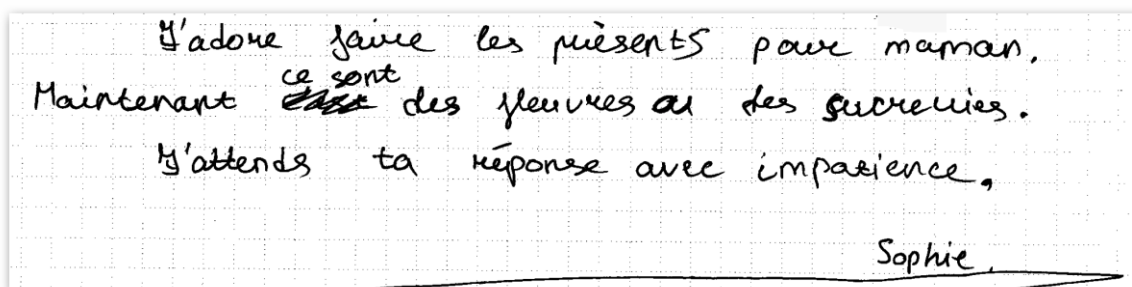 J'adore faire les prèsents pour maman.
Maintenant ce sont des fleuvres ou des sucreries.
J'attends ta réponse avec impatience.
Sophie.